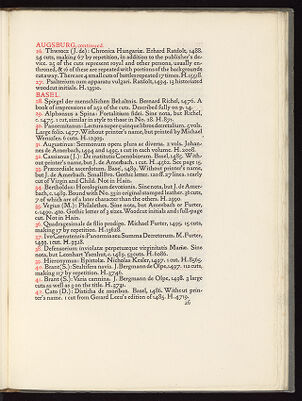 AUGSBURG, continued.
26. Thwrocz (J. de): Chronica Hungariæ. Erhard Ratdolt, 1488.
cuts, making 67 by repetition, in addition to the publisher's de-
vice. 25 of the cuts represent royal and other persons, usually en-
throned, & 16 of these are repeated with portions of the backgrounds
cut away. There are 4 small cuts of battles repeated 17 times. H.
27. Psalterium cum apparatu vulgari. Ratdolt, 1494. historiated
woodcut initials. H. 13510.
BASEL.
28. Spiegel der menschlichen Behaltnis. Bernard Richel, 1476. A
book of impressions of 257 of the cuts. Described fully on p. 14.
29. Alphonsus a Spina: Fortalitium fidei. Sine nota, but Richel,
c. 1475. 1 cut, similar in style to those in No. 28. H. 871.
30. Panormitanus: Lectura super quinque libros decretalium. 5 vols.
Large folio. 1477. Without printer's name, but printed by Michael
Wenssler. 6 cuts. H. 12309.
31. Augustinus: Sermonum opera plura et diversa. 2 vols. Johan-
nes de Amerbach, 1494 and 1495. 1 cut in each volume. H. 2008.
32. Cassianus (J.): De institutis Cœnobiorum. Basel, 1485. With-
out printer's name, but J. de Amerbach. 1 cut. H. 4562. See page 15.
33. Præcordiale sacerdotum. Basel, 1489. Without printer's name,
but J. de Amerbach. Small 8vo. Gothic letter. 118 ff. 17 lines. 1 early
cut of Virgin and Child. Not in Hain.
34. Bertholdus: Horologium devotionis. Sine nota, but J. de Amer-
bach, c. 1489. Bound with No. 33 in original stamped leather. 36 cuts,
7 of which are of a later character than the others. H. 2990
35. Vegius (M.): Philalethes. Sine nota, but Amerbach or Furter,
c. 1490. 4to. Gothic letter of 2 sizes. Woodcut initials and 1 full-page
cut. Not in Hain.
36. Quadragesimale de filio prodigo. Michael Furter, 1495. 15 cuts,
making 17 by repetition. H. 13628.
37. Ivo Carnotensis: Panormia seu Summa Decretorum. M. Furter,
1499. 1 cut. H. 9328.
38. Defensorium inviolatæ perpetuæque virginitatis Mariæ. Sine
nota, but Leonhart Ysenhut, c. 1485. 53 cuts. H. 6086.
39. Hieronymus: Epistolæ. Nicholas Kesler, 1497. 1 cut. H. 8565.
40. Brant (S.): Stultifera navis. J. Bergmann de Olpe, 1497. cuts,
making 117 by repetition. H. 3746.
41. Brant (S.): Varia carmina. J. Bergmann de Olpe, 1498. 3 large
cuts as well as 3 on the title. H. 3731.
42. Cato (D.): Disticha de moribus. Basel, 1486. Without prin-
ter's name. 1 cut from Gerard Leeu's edition of 1485. H. 4719.
26